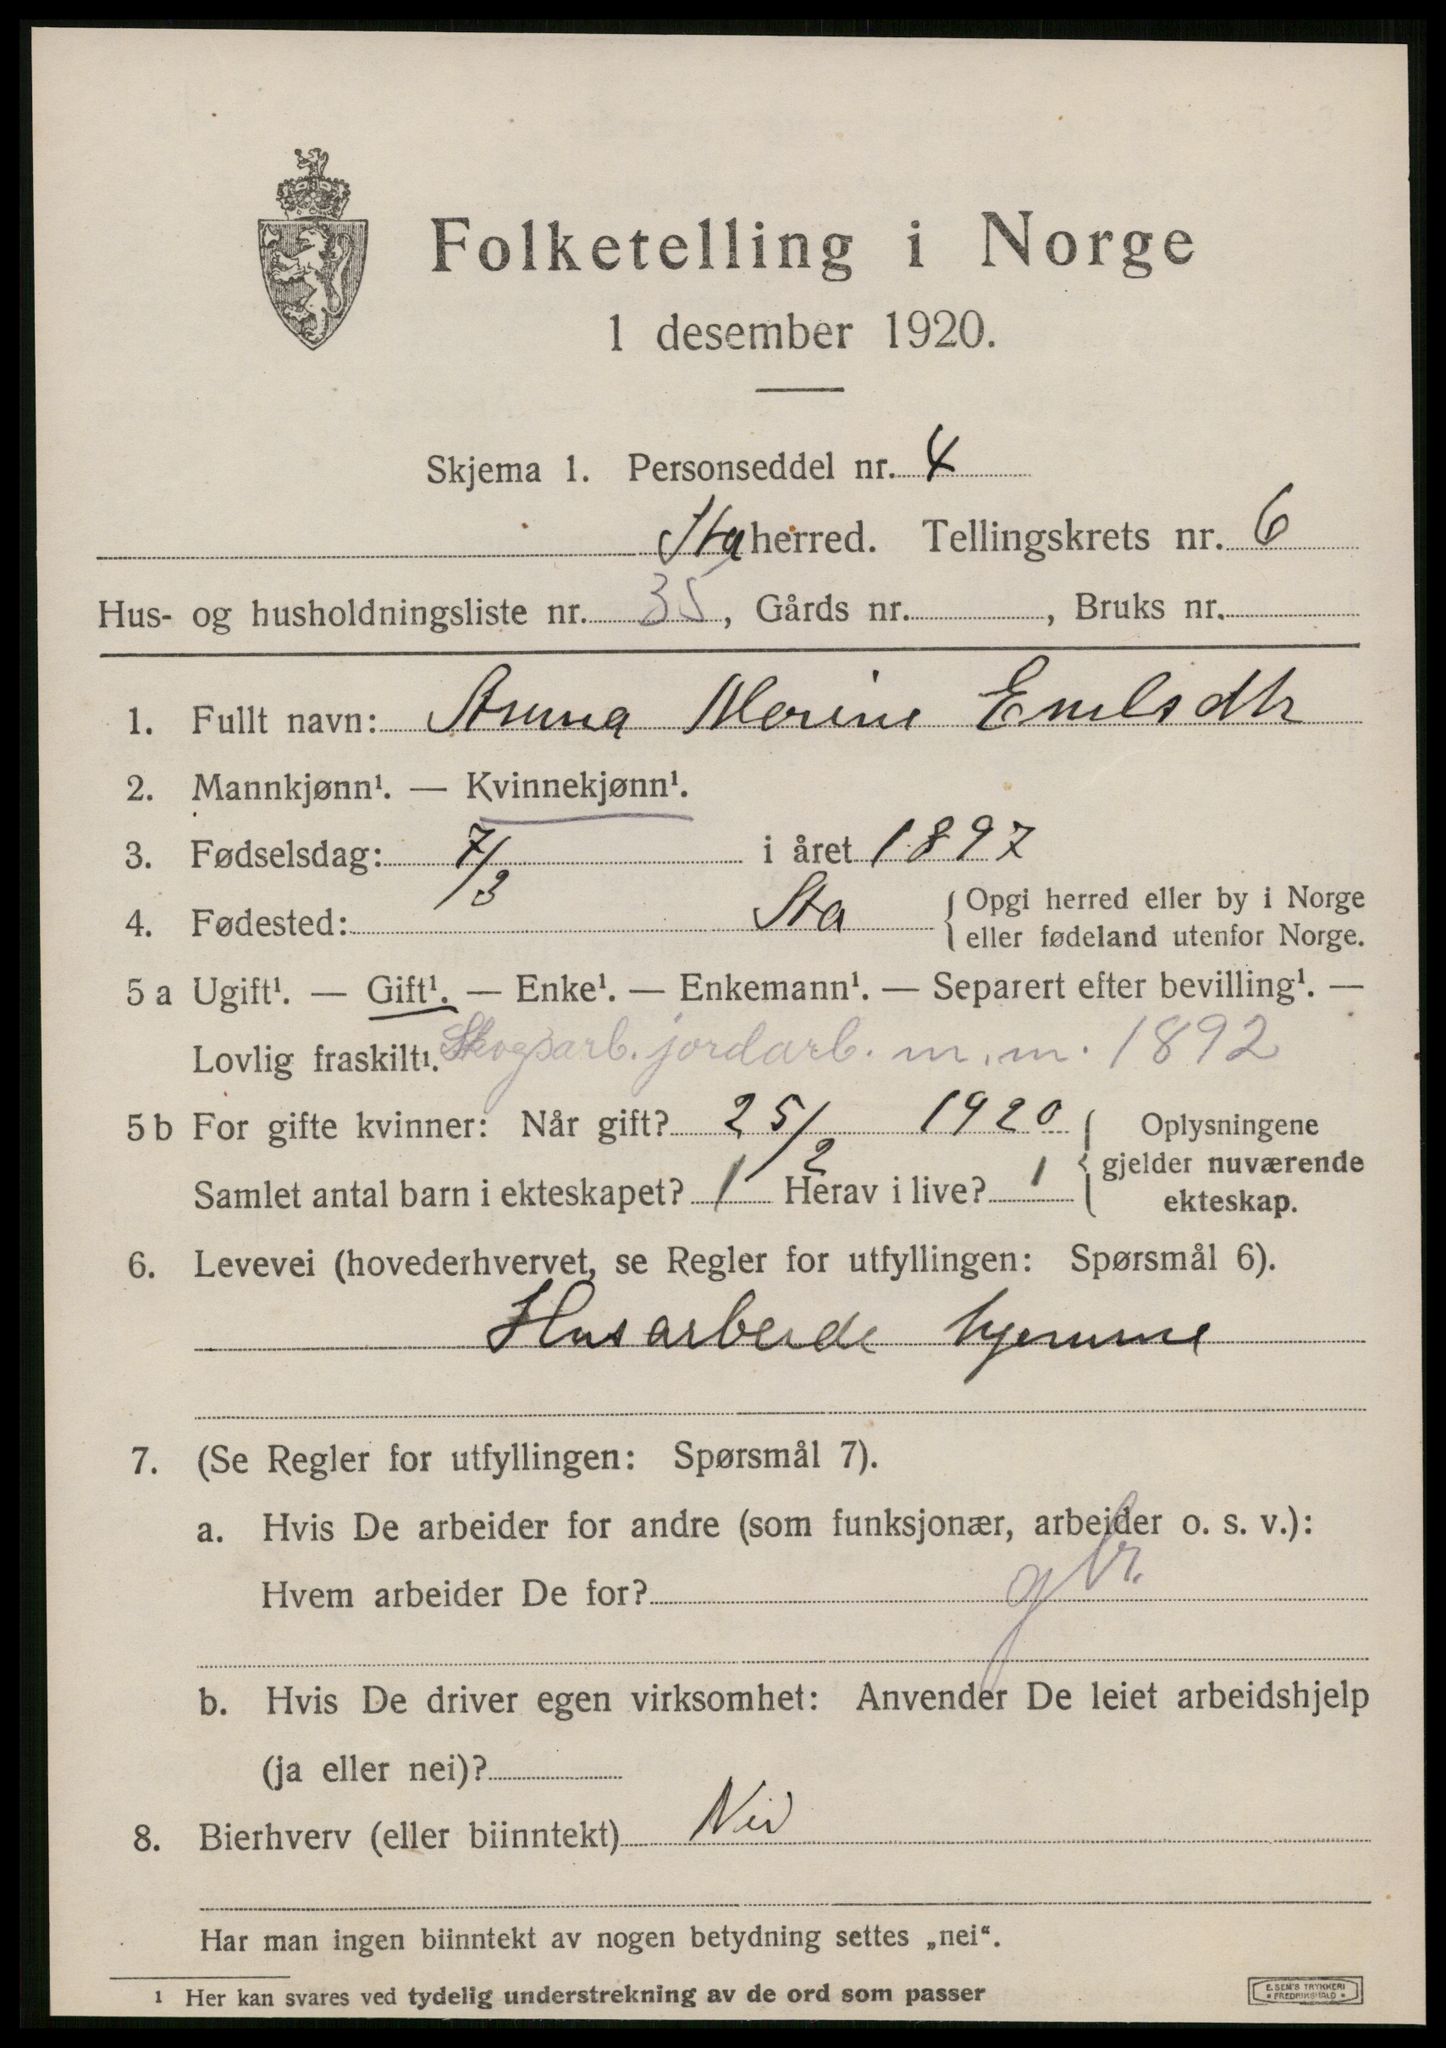 Folketelling i Norge
1 desember 1920.
Skjema 1. Personseddel nr. 4
Sta herred. Tellingskrets nr. 6
Hus- og husholdningsliste nr. 35, Gårds nr. , Bruks nr.
1. Fullt navn: Anna Marine Emilsdtr
2. Mannkjønn¹. — Kvinnekjønn¹.
3. Fødselsdag: 7/3 i året 1897
4. Fødested: Sta { Opgi herred eller by i Norge
eller fødeland utenfor Norge.
5 a Ugift¹. — Gift¹. — Enke¹. — Enkemann¹. — Separert efter bevilling¹. —
Lovlig fraskilt¹. Skogsarb. jordarb. m. m. 1892
5 b For gifte kvinner: Når gift? 25/2 1920
Samlet antal barn i ekteskapet? 1 Herav i live? 1
{ Oplysningene
gjelder nuværende
ekteskap.
6. Levevei (hovederhvervet, se Regler for utfyllingen: Spørsmål 6).
Husarbeide hjemme
7. (Se Regler for utfyllingen: Spørsmål 7).
a. Hvis De arbeider for andre (som funksjonær, arbeider o. s. v.):
Hvem arbeider De for? gbr.
b. Hvis De driver egen virksomhet: Anvender De leiet arbeidshjelp
(ja eller nei)?
8. Bierhverv (eller biinntekt) Nei
Har man ingen biinntekt av nogen betydning settes „nei“.
¹ Her kan svares ved tydelig understrekning av de ord som passer
E. SEM'S TRYKKERI
* FREDRIKSHALD *